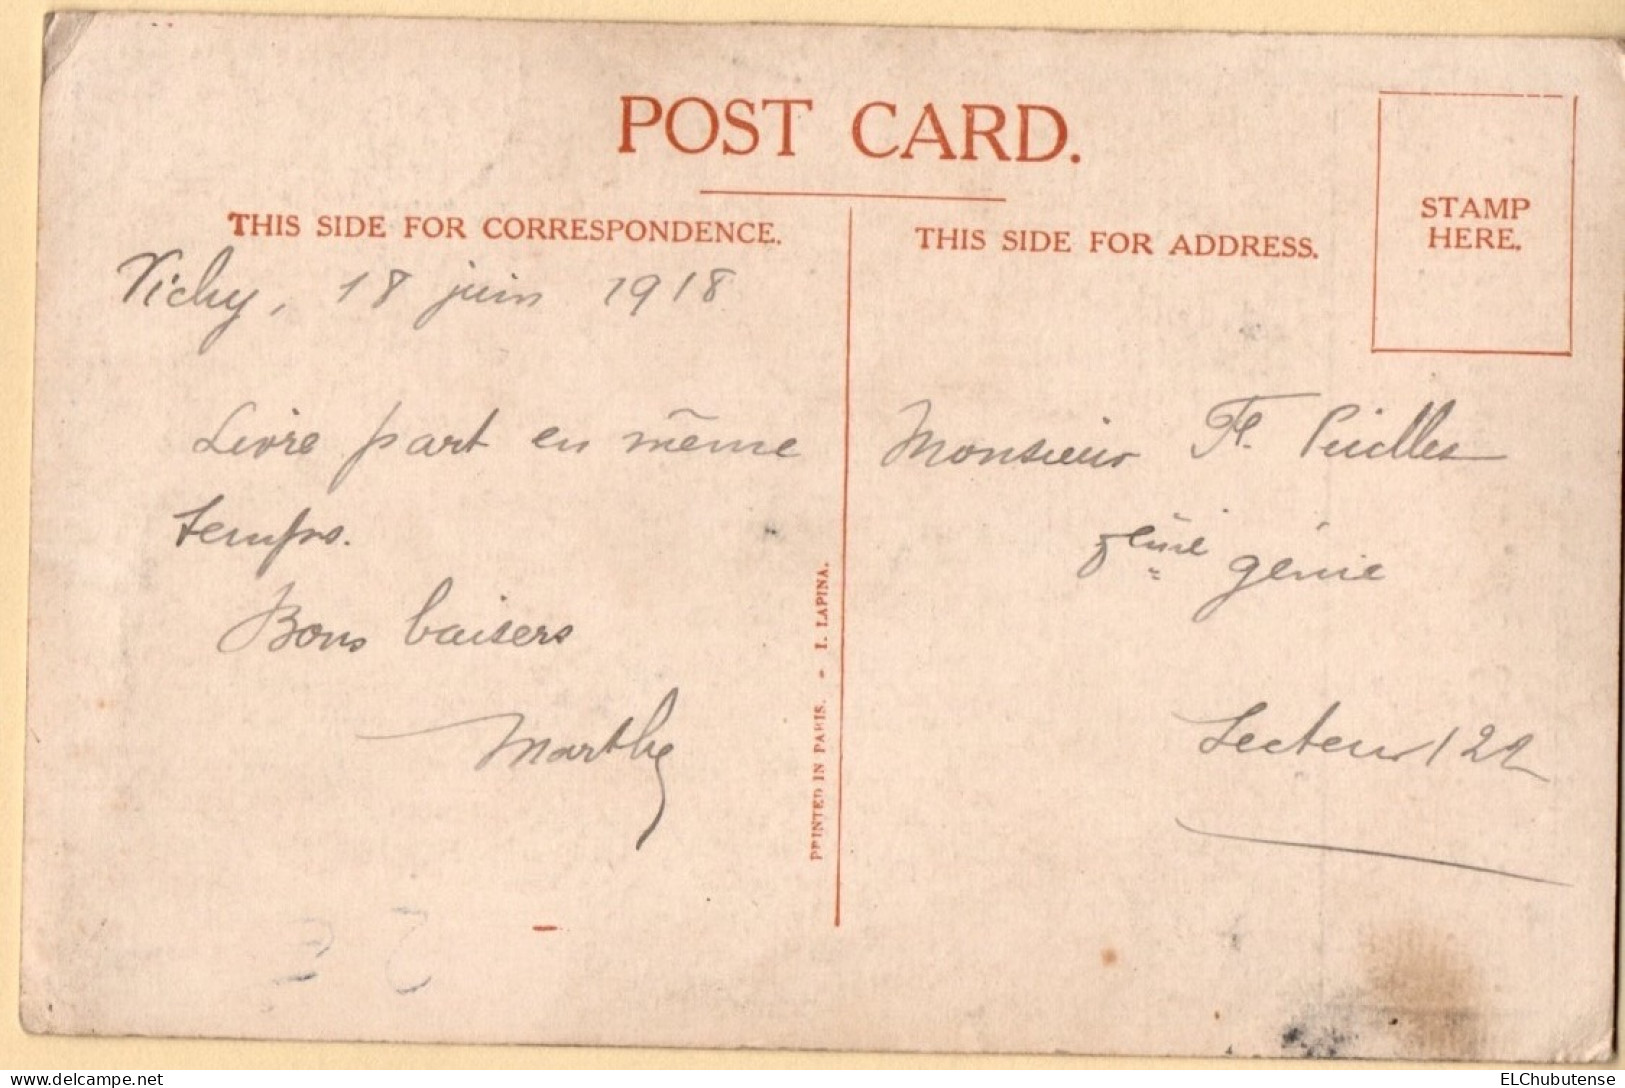 POST CARD.
THIS SIDE FOR CORRESPONDENCE.
Vichy, 18 juin 1918
Livre part en même
temps.
Bons baisers
Marthe
PRINTED IN PARIS. - I. LAPINA.
THIS SIDE FOR ADDRESS.
STAMP
HERE.
Monsieur
génie
Secteur 122
ELChubutense